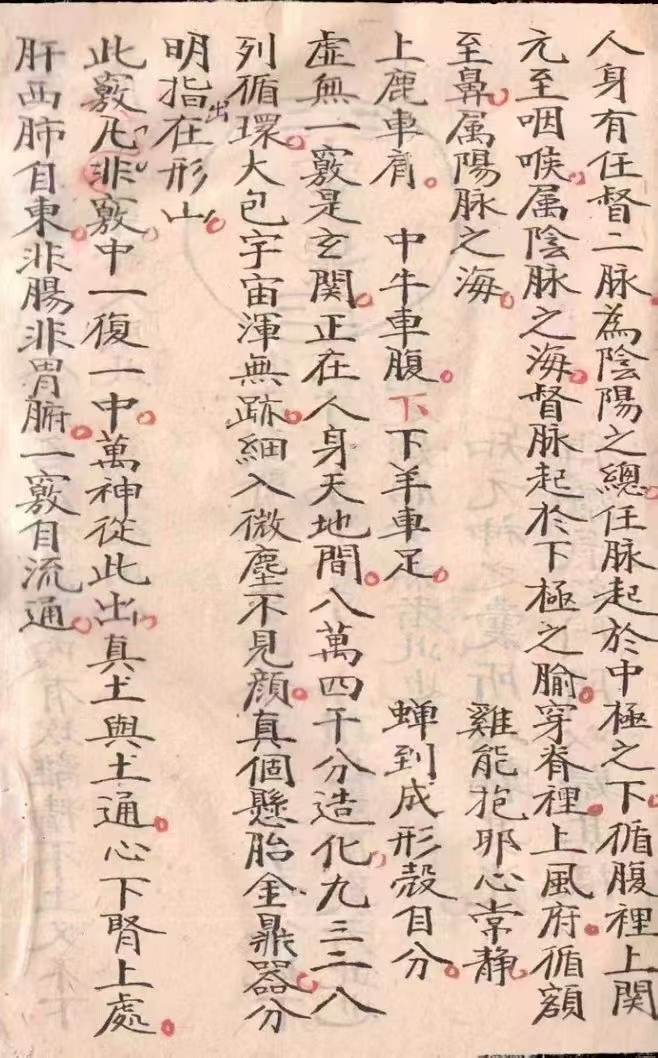 人身有任督二脉為陰陽之總任脉起於中極之下循腹裡上関
元至咽喉属陰脉之海督脉起於下極之腧穿脊裡上風府循額
至鼻属陽脉之海　雞能抱卵心常静
上鹿車肩　中牛車腹下下羊車足　蝉到成形殼自分
虛無一竅是玄関正在人身天地間八萬四千分造化九三二八
列循環大包宇宙渾無跡細入微塵不見顔真個懸胎金鼎器分
明指出在形山
此竅凡非竅中一復一中萬神從此出真土與土通心下腎上處
肝西肺自東非腸非胃腑一竅自流通